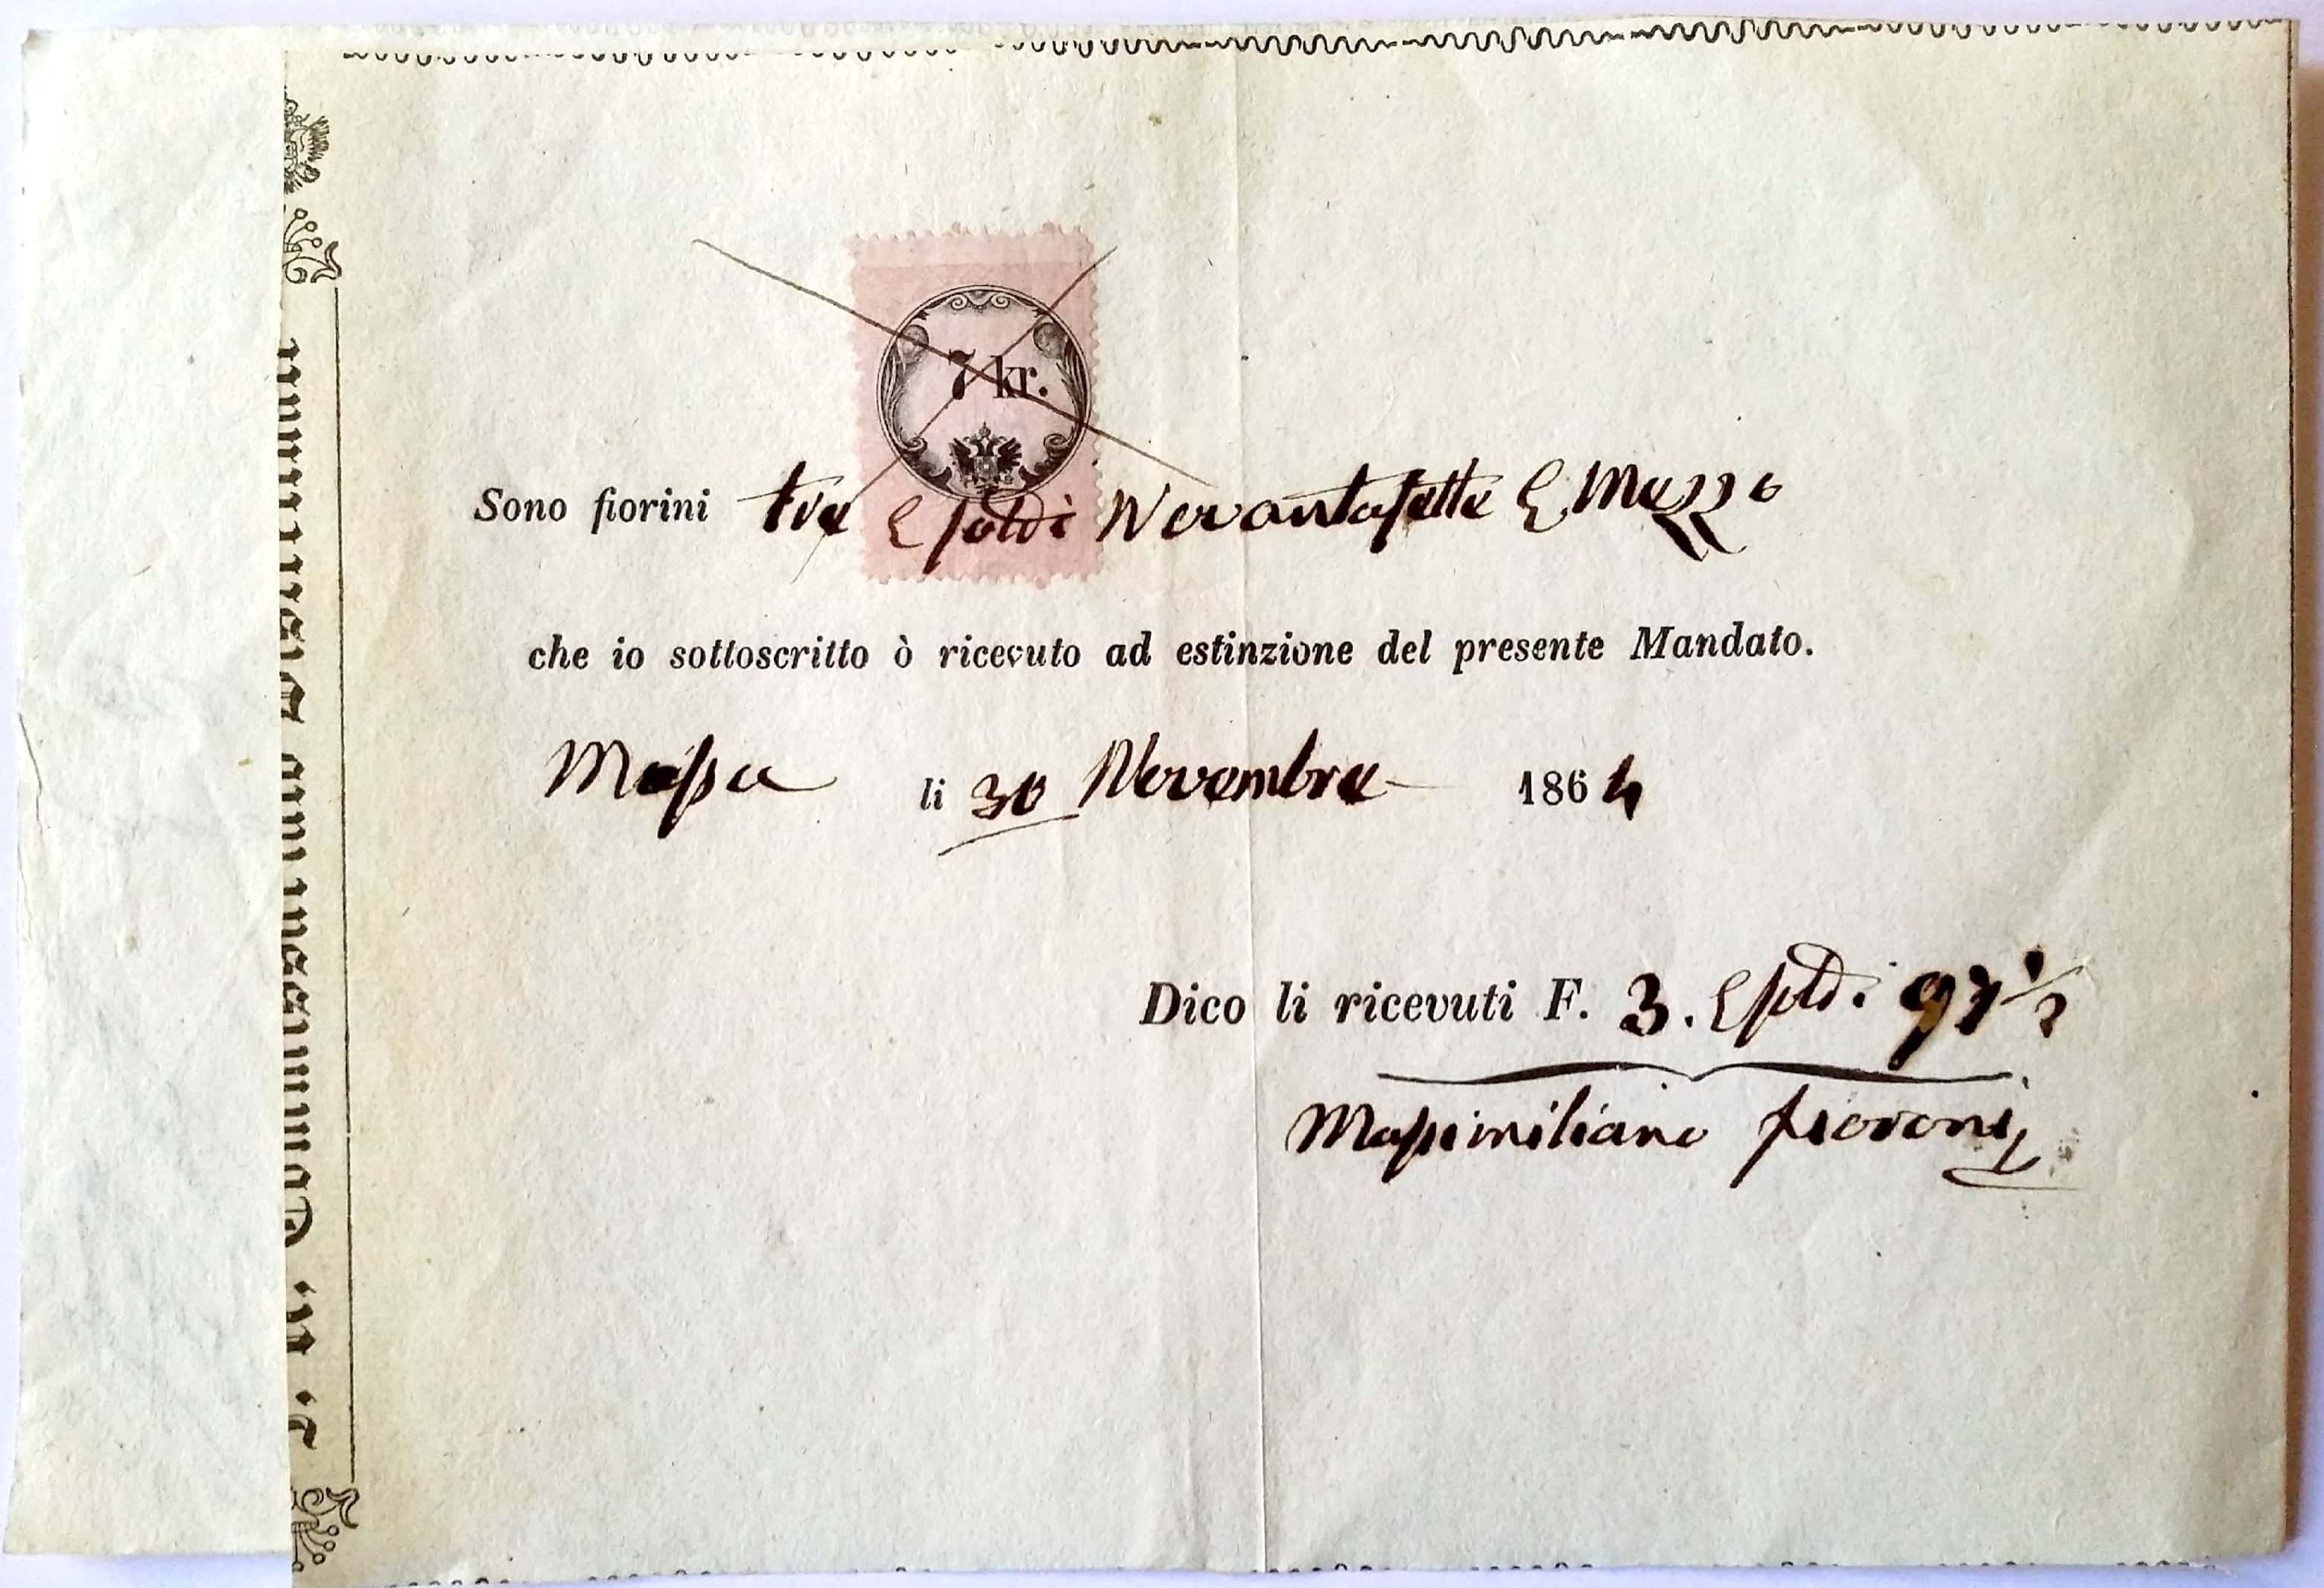 7 kr.
Sono fiorini tre e soldi Novantasette e Mezzo
che io sottoscritto ò ricevuto ad estinzione del presente Mandato.
Massa li 30 Novembre 1864
Dico li ricevuti F. 3. e soldi 97 1/2
Massimiliano fioroni